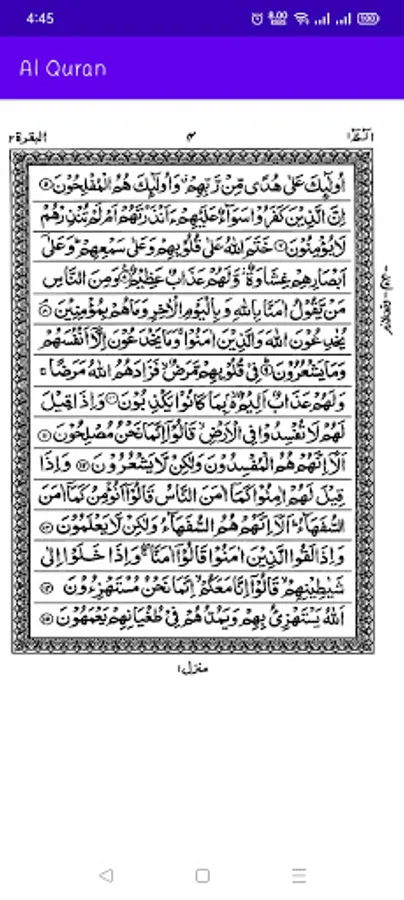 4:45
8.00
KB/S
100
Al Quran
الٓمّٓ ١
٤
البقرة ٢
اُولٰٓئِكَ عَلٰى هُدًى مِّنْ رَّبِّهِمْ ۙ وَاُولٰٓئِكَ هُمُ الْمُفْلِحُوْنَ ۝٥
اِنَّ الَّذِيْنَ كَفَرُوْا سَوَآءٌ عَلَيْهِمْ ءَاَنْذَرْتَهُمْ اَمْ لَمْ تُنْذِرْهُمْ
لَا يُؤْمِنُوْنَ ۝٦ خَتَمَ اللّٰهُ عَلٰى قُلُوْبِهِمْ وَعَلٰى سَمْعِهِمْ ؕ وَعَلٰٓى
اَبْصَارِهِمْ غِشَاوَةٌ ۫ وَّلَهُمْ عَذَابٌ عَظِيْمٌ ۝٧ وَمِنَ النَّاسِ
مَنْ يَّقُوْلُ اٰمَنَّا بِاللّٰهِ وَبِالْيَوْمِ الْاٰخِرِ وَمَا هُمْ بِمُؤْمِنِيْنَ ۝٨
يُخٰدِعُوْنَ اللّٰهَ وَالَّذِيْنَ اٰمَنُوْا ۚ وَمَا يَخْدَعُوْنَ اِلَّاۤ اَنْفُسَهُمْ
وَمَا يَشْعُرُوْنَ ۝٩ فِيْ قُلُوْبِهِمْ مَّرَضٌ ۙ فَزَادَهُمُ اللّٰهُ مَرَضًا ۚ
وَلَهُمْ عَذَابٌ اَلِيْمٌۢ ۙ۬ بِمَا كَانُوْا يَكْذِبُوْنَ ۝١٠ وَاِذَا قِيْلَ
لَهُمْ لَا تُفْسِدُوْا فِي الْاَرْضِ ۙ قَالُوْۤا اِنَّمَا نَحْنُ مُصْلِحُوْنَ ۝١١
اَلَاۤ اِنَّهُمْ هُمُ الْمُفْسِدُوْنَ وَلٰكِنْ لَّا يَشْعُرُوْنَ ۝١٢ وَاِذَا
قِيْلَ لَهُمْ اٰمِنُوْا كَمَاۤ اٰمَنَ النَّاسُ قَالُوْۤا اَنُؤْمِنُ كَمَاۤ اٰمَنَ
السُّفَهَآءُ ؕ اَلَاۤ اِنَّهُمْ هُمُ السُّفَهَآءُ وَلٰكِنْ لَّا يَعْلَمُوْنَ ۝١٣
وَاِذَا لَقُوا الَّذِيْنَ اٰمَنُوْا قَالُوْۤا اٰمَنَّا ۚۖ وَاِذَا خَلَوْا اِلٰى
شَيٰطِيْنِهِمْ ۙ قَالُوْۤا اِنَّا مَعَكُمْ ۙ اِنَّمَا نَحْنُ مُسْتَهْزِءُوْنَ ۝١٤
اَللّٰهُ يَسْتَهْزِئُ بِهِمْ وَيَمُدُّهُمْ فِيْ طُغْيَانِهِمْ يَعْمَهُوْنَ ۝١٥
منزل ١